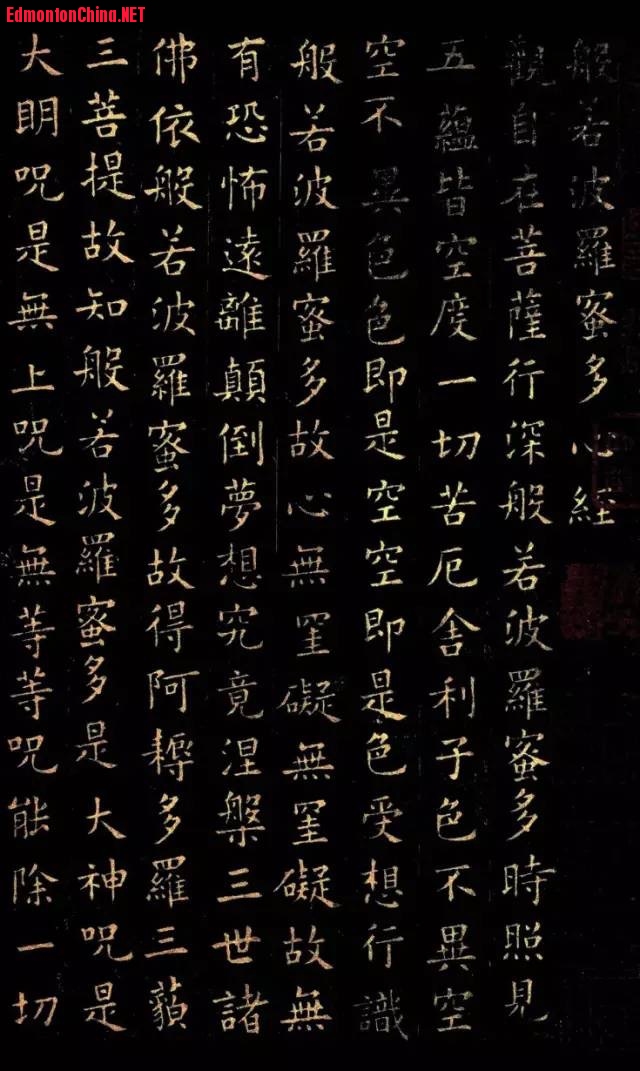 EdmontonChina.NET
般若波羅蜜多心經
觀自在菩薩行深般若波羅蜜多時照見
五蘊皆空度一切苦厄舍利子色不異空
空不異色色即是空空即是色受想行識
般若波羅蜜多故心無罣礙無罣礙故無
有恐怖遠離顛倒夢想究竟涅槃三世諸
佛依般若波羅蜜多故得阿耨多羅三藐
三菩提故知般若波羅蜜多是大神呪是
大明呪是無上呪是無等等呪能除一切